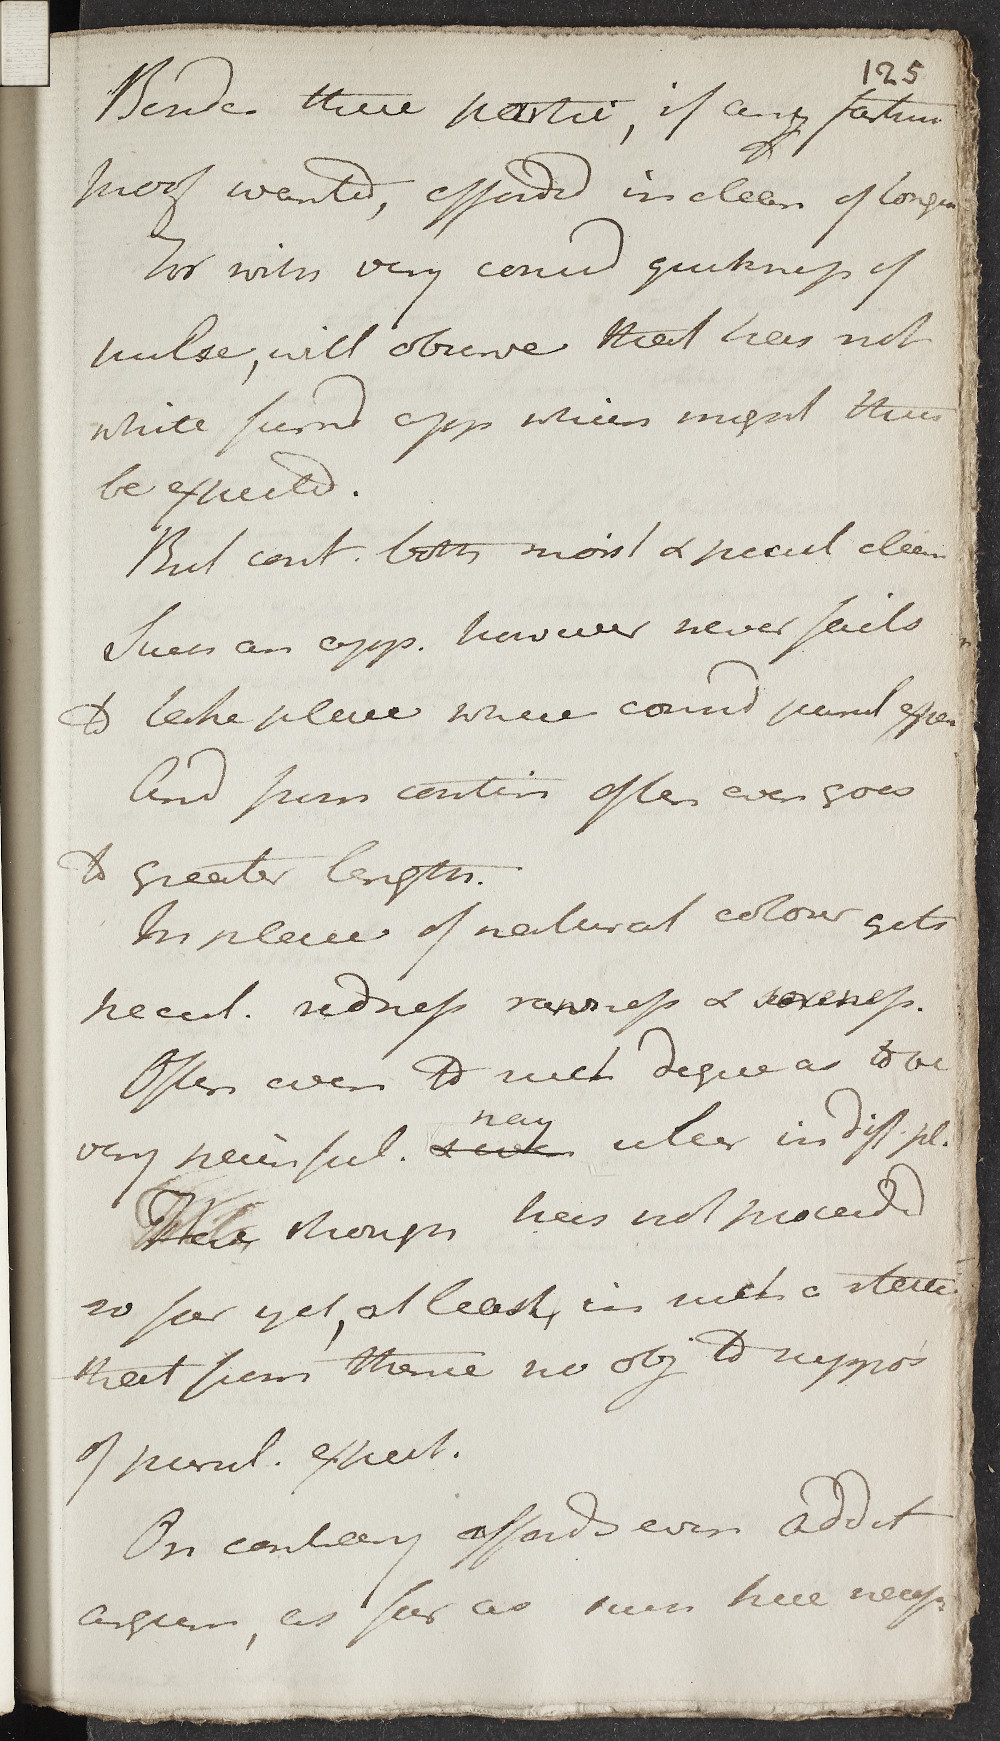 125
Besides these partic, if any farthr
proof wanted, affordd in clean of tongu
For with very considd quickness of
pulse, will observe that has not
white furrd app which might thus
be expectd.
But cont. both moist & pecul clean
Such an app. however never fails
to take place where considd purul expec
And from contin often even goes
to greater length.
In place of natural colour gets
pecul. redness rawness & soreness.
Often even to such degree as to be
very painful. nay ulcer in diff. pl.
Here though has not proceedd
so far yet, at least, in such a state
that from thence no obj to suppos
of purul. expect.
On contrary affords even addit
argum, as far as such here necess